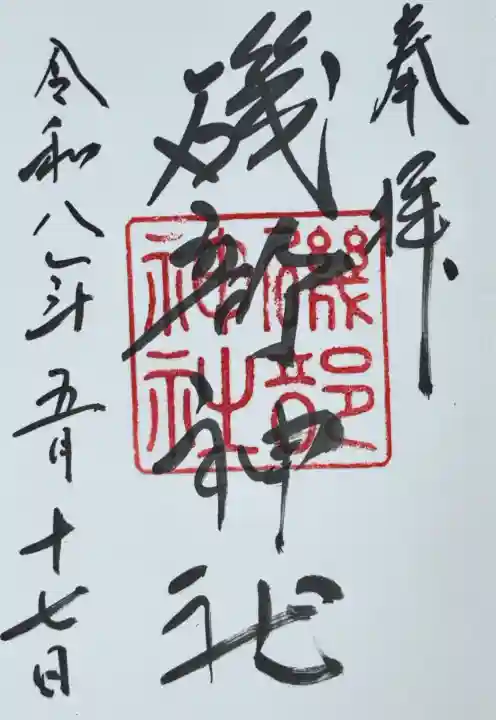 奉拝
磯部神社
磯部神社
令和八年五月十七日